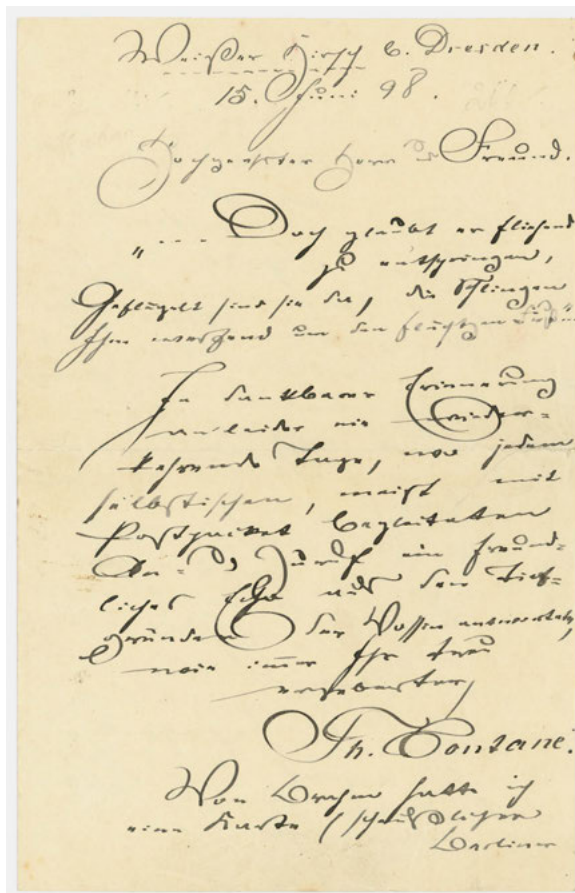 Weißer Hirsch b. Dresden.
15. Juni 98.
Hochgeehrter Herr u. Freund.
„ --- Doch glaubt er fliehend
zu entspringen,
Geflügelt sind sie da, die Schlingen
Ihm werfend um den flücht'gen Fuß"
In dankbarer Erinnerung
an leider nie wieder-
kehrende Tage, wo jedem
selbstischen, meist mit
Postpacket begleiteten
Zuruf ein freund-
liches Echo aus den Tief-
gründen der Vossin antwortete,
wie immer Ihr treu
ergebenster
Th. Fontane.
Von Brahm hatte ich
eine Karte (scheußlicher
Berliner